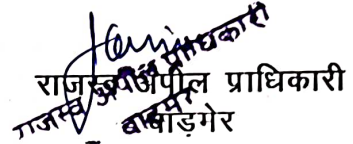 राजस्व अपील प्राधिकारी
बाड़गेर
राजस्व अपील प्राधिकारी
बाड़मेर